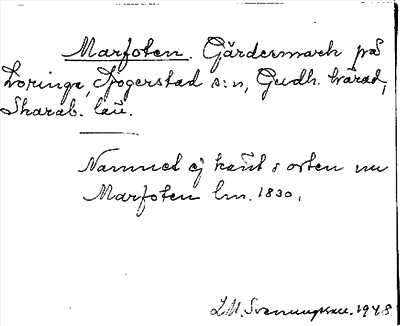 Marfoten. Gärdesmark på
Loringa Fogerstad s:n, Gudh. härad,
Skarab. län.
Namnet ej känt i orten nu
Marfoten lm. 1830.
1948